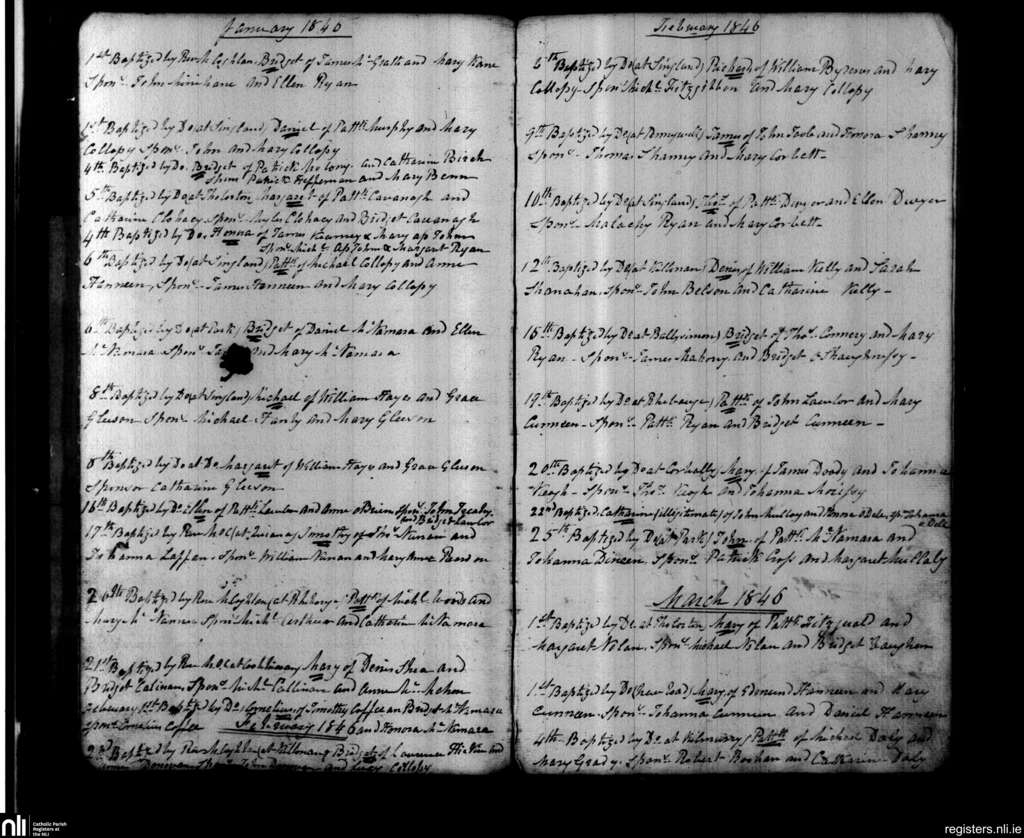 January 1846
1st Baptized by Rev McCoghlan Bridget of James McGrath and Mary Kane
Sponr. John Minihane and Ellen Ryan
1st Baptized by Do (at Singland) Daniel of Pattk. Murphy and Mary
Collopy Sponr. John and Mary Collopy
4th Baptized by Do. Bridget of Patrick and Catharine Birch
Sponr Patrick Heffernan and Mary Benn
5th Baptized by Do at Margaret of Pattk. Cavanagh and
Catharine Clohacy Sponr. Myles Clohacy and Bridget Cavanagh
4th Baptized by Do. Honora of James Kearney & Mary ap John
Sponr. Michl. Ap John & Margaret Ryan
6th Baptized by Do (at Singland) Pattk. of Michael Collopy and Anne
Hanneen, Sponr. James Hanneen and Mary Collopy
6th Baptized by Do (at Park) Bridget of Daniel McNamara and Ellen
McNamara Sponr. and Mary McNamara
8th Baptized by Do (at Singland) Michael of William Hayes and Grace
Gleeson Sponr. Michael Hanly and Mary Gleeson
8th Baptized by Do at Do Margaret of William Hayes and Grace Gleeson
Sponsor Catharine Gleeson
16th Baptized by Do Ellen of Pattk Lawlor and Anne OBrien Sponr. John
and Bridget Lawlor
17th Baptized by Rev Timothy of and
Johanna Lappen Sponr. William and Mary Anne
Baptized by Rev McCoghlan (at Rhebogue) Pattk of Michl. Woods and
Mary Sponr Michl. and Catharine McNamara
21st Baptized by Rev Mary of Denis Shea and
Bridget Callinan, Sponr. Michl. Callinan and Anne McMahon
February 1st Baptized by Do. Cornelius of Timothy Coffee an Bridget McNamara
Sponr. Cornelius Coffee and Honora McNamara
February 1846
2nd Baptized by Rev McCoghlan (at Killonan) Bridget of Laurence and
Donovan Sponr. John and Lucy Collopy
February 1846
6th Baptized by Do (at Singland) Richard of William and Mary
Collopy Sponr Michl. Fitzgibbon and Mary Collopy
9th Baptized by Do (at Pennywell) James of John and Honora Shanny
Sponr. Thomas Shanny and Mary Corbett
10th Baptized by Do (at Singland) Thos. of Pattk. Dwyer and Ellen Dwyer
Sponr. Malachy Ryan and Mary Corbett
12th Baptized by Do (at Killonan) Denis of William Kelly and Sarah
Shanahan Sponr. John Belson and Catharine Kelly
15th Baptized by Do at Ballysimon) Bridget of Thos. Connery and Mary
Ryan - Sponr. James Mahony and Bridget
17th Baptized by Do. at Rhebogue) Pattk. of John Lawlor and Mary
Cunneen - Sponr. Pattk. Ryan and Bridget Cunneen
20th Baptized by Do at Corbally Mary of James Doody and Johanna
Keogh - Sponr. Thos. Keogh and Johanna Morissy
22nd Baptized Catharine (illegitimate) of John Mullay and Anne ODell, Sp. Johanna
ODell
25th Baptized by Do (at Park) John of Pattk. McNamara and
Johanna Dineen, Sponr. Patrick Cross and Margaret Mullaly
March 1846
1st Baptized by Do. at Mary of Pattk Fitzgerald and
Margaret Nolan, Sponr. Michael Nolan and Bridget Vaughan
1st Baptized by Do (New Road) Mary of Edmund Hanneen and Mary
Cunneen. Sponr. Johanna Cunneen and Daniel Hanneen
4th Baptized by Do. at Kilmurry) Pattk. of Michael Daly and
Mary Grady. Sponr. Robert Boohan and Catharine Daly
nli Catholic Parish
Registers at
the NLI
registers.nli.ie